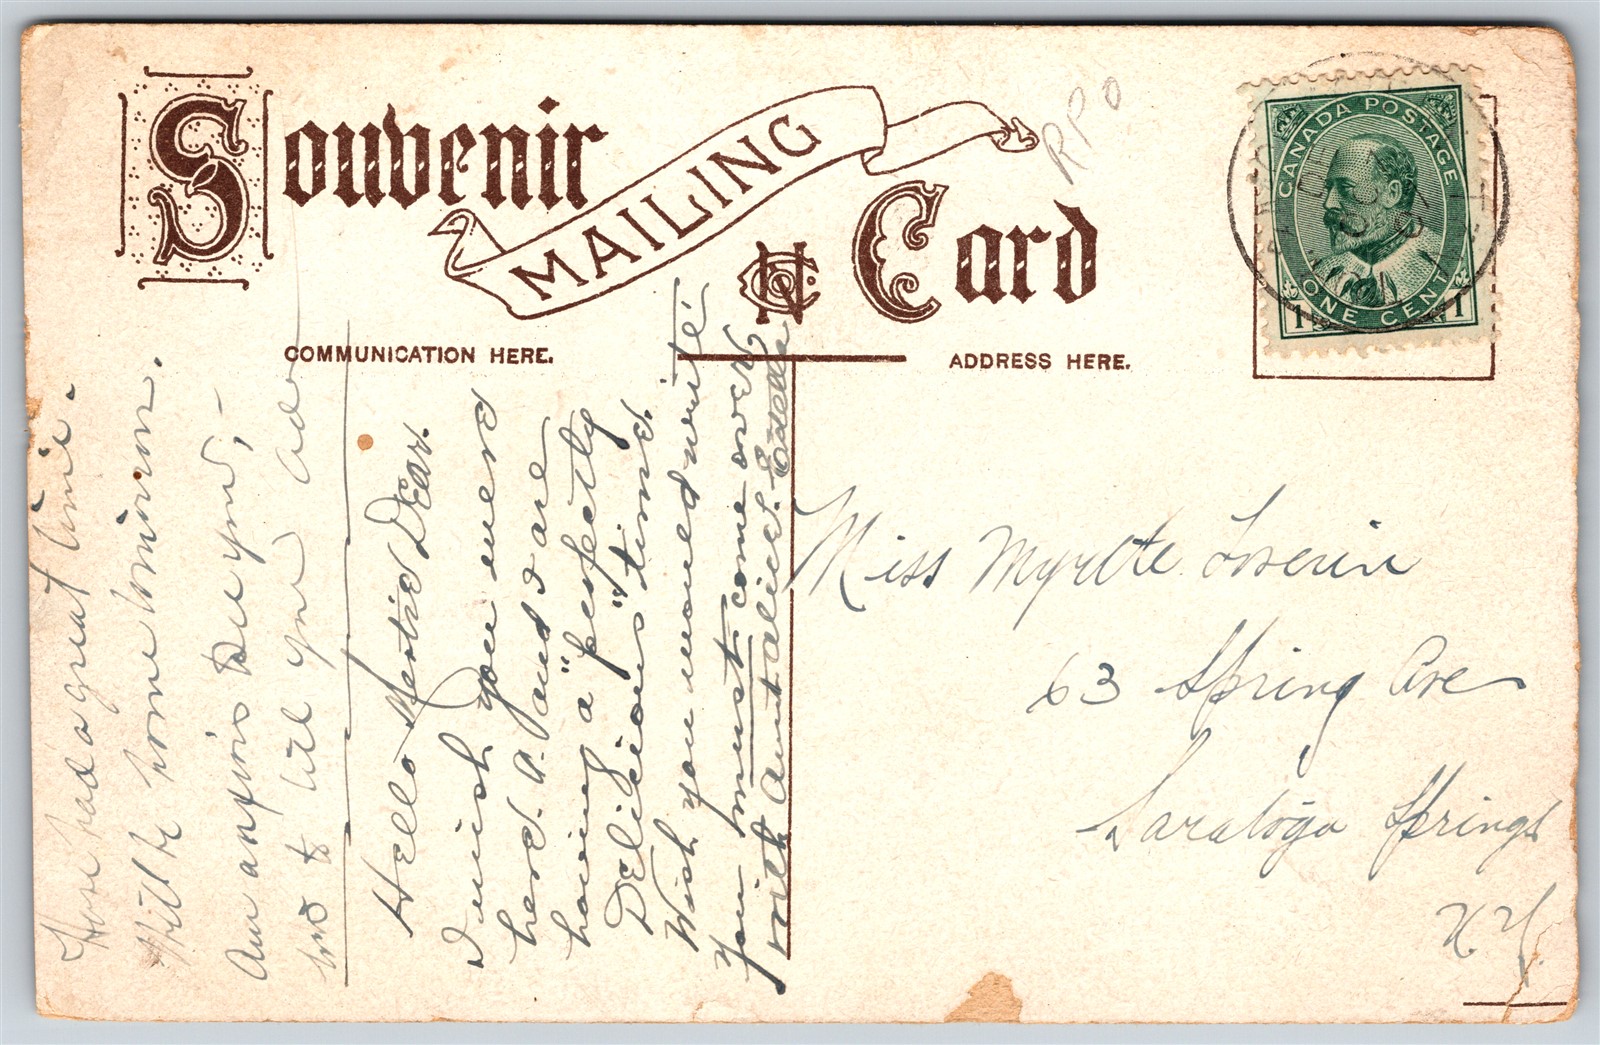 Souvenir
MAILING
Card
RPO
CANADA POSTAGE
ONE CENT
1 1
OC 1
07
COMMUNICATION HERE.
ADDRESS HERE.
Have had a great time.
Will be home tomorrow.
Am anxious to see you,-
and to tell you
Hello Mertie Dear.
I wish you were
here. A. and I are
having a "perfectly
Delicious" time.
Wish you would write.
You must come over
with Aunt Alice. Edda
Miss Myrtle Loserin
63 Spring Ave
Saratoga Springs
N.Y.